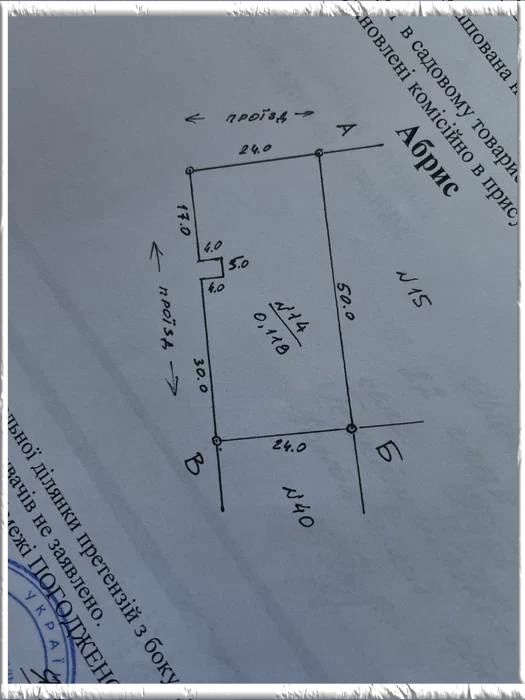 шована
в садовому товари
новлені комісійно в прис
Абрис
← проїзд →
А
24.0
17.0
4.0
5.0
4.0
← проїзд →
N14
0,118
50.0
N15
30.0
В
24.0
Б
N40
льної ділянки претензій з боку
вачів не заявлено.
межі ПОГОДЖЕНО
УКРАЇ